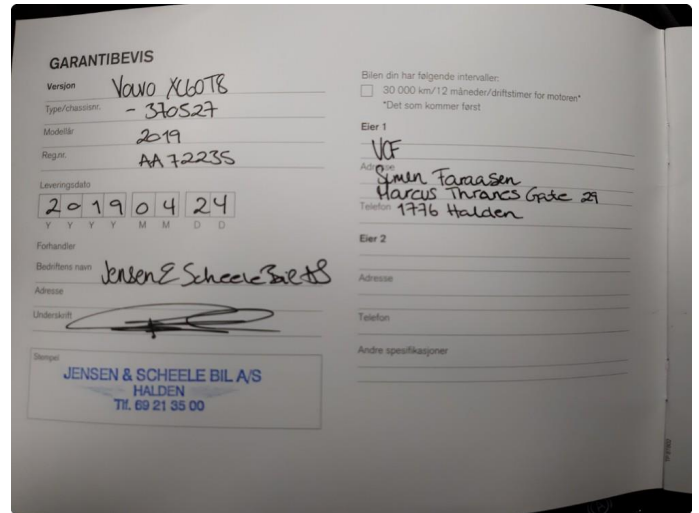 GARANTIBEVIS
Versjon Volvo XC60T8
Type/chassisnr. - 370527
Modellår 2019
Reg.nr. AA 72235
Leveringsdato
2 0 1 9 0 4 2 4
Y Y Y Y M M D D
Forhandler
Bedriftens navn Jensen & Scheele Bil AS
Adresse
Underskrift
Stempel
JENSEN & SCHEELE BIL A/S
HALDEN
Tlf. 69 21 35 00
Bilen din har følgende intervaller:
30 000 km/12 måneder/driftstimer for motoren*
*Det som kommer først
Eier 1
VCF
Adresse Simen Faraasen
Marcus Thranes Gate 29
Telefon 1776 Halden
Eier 2
Adresse
Telefon
Andre spesifikasjoner